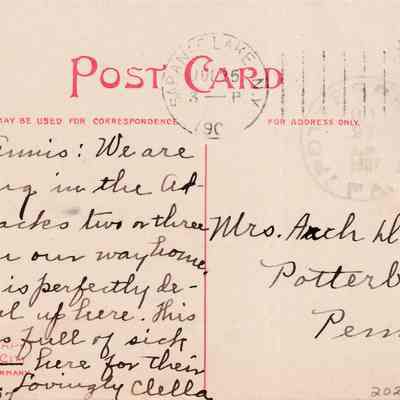 POST CARD
SARANAC LAKE, N.Y.
3 - P
190
MAY BE USED FOR CORRESPONDENCE
FOR ADDRESS ONLY.
ennis: We are
ing in the Ad-
acks two or three
n our way home.
is perfectly de-
l up here. This
s full of sick
here for their
Lovingly Clella
Mrs. Arch D
Potterb
Penn
RMANY.
202